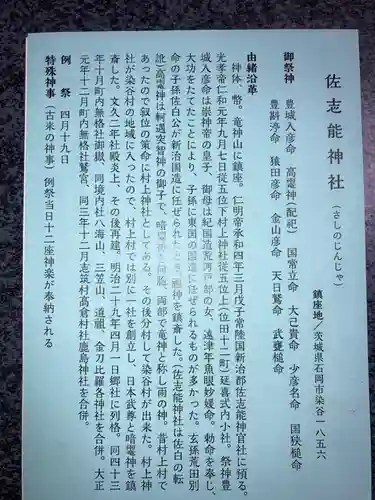 佐志能神社（さしのじんじゃ）
鎮座地／茨城県石岡市染谷一八五六
御祭神　豊城入彦命　高龗神（配祀）　国常立命　大己貴命　少彦名命　国狭槌命
豊斟渟命　猿田彦命　金山彦命　天日鷲命　武甕槌命
由緒沿革
神体、幣。竜神山に鎮座。仁明帝承和四年三月戊子常陸国新治郡佐志能神官社に預る。
光孝帝仁和元年九月七日従五位下村上神社従五位上（位田十二町）延喜式内小社。祭神豊
城入彦命は崇神帝の皇子、御母は紀国造荒河戸部の女、遠津年魚眼妙媛命。勅命を奉じ、
大功をたてたことにより、子孫に東国の国造に任ぜられるものが多かった。玄孫荒田別
命の子孫佐白公が新治国造に任ぜられたとき、祖神を鎮斎した。（佐志能神社は佐白の転
訛）高龗神は軻遇突智神の御子で、暗龗神と同胞、両部で竜神と称し雨の神。昔村上村で
あったので叙位の策命に村上神社としてある。その後分村して染谷村が出来た。村上神
社が染谷村の地域に入ったので、村上村では別に一社を創立し、日本武尊と暗龗神を鎮
斎した。文久二年社殿炎上、その後再建。明治二十九年四月一日郷社に列格。同四十三
年十月町内無格社御嶽、同境内社八海山、三笠山、道祖、金刀比羅各神社を合併。大正
元年十二月町内無格社鷲宮、同三年十二月志筑村高倉村社鹿島神社を合併。
例　祭　四月十九日
特殊神事（古来の神事）例祭当日十二座神楽が奉納される